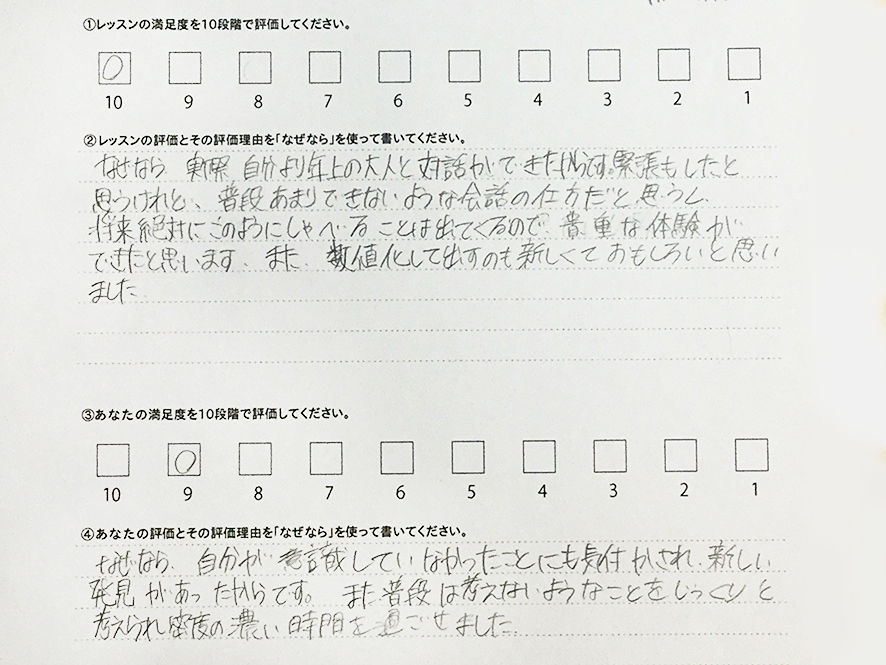 ①レッスンの満足度を10段階で評価してください。
10 9 8 7 6 5 4 3 2 1
②レッスンの評価とその評価理由を「なぜなら」を使って書いてください。
なぜなら 実際 自分より年上の大人と対話ができたからです。緊張もしたと
思うけれど、普段あまりできないような会話の仕方だと思うし
将来絶対にこのようにしゃべることは出てくるので 貴重な体験が
できたと思います。また、数値化して出すのも新しくておもしろいと思い
ました
③あなたの満足度を10段階で評価してください。
10 9 8 7 6 5 4 3 2 1
④あなたの評価とその評価理由を「なぜなら」を使って書いてください。
なぜなら、自分が意識していなかったことにも気付かされ、新しい
発見があったからです。また普段は考えないようなことをじっくりと
考えられ密度の濃い時間を過ごせました。